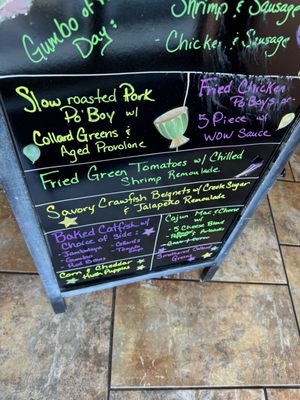 Gumbo of the
Day:
Shrimp & Sausage
- Chicken & Sausage
Slow roasted Pork
Po' Boy w/
Collard Greens &
Aged Provolone
Fried Chicken
Po' Boys or
5 Piece w/
WOW Sauce
Fried Green Tomatoes w/ Chilled
Shrimp Remoulade
Savory Crawfish Beignets w/ Creole Sugar
& Jalapeño Remoulade
Baked Catfish w/
Choice of Side:
- Jambalaya
- Gumbo
- Red Beans
- Collards
- Tomato
Corn & Cheddar
Hush Puppies
Cajun Mac & Cheese
w/
- 5 Cheese Blend
Greens